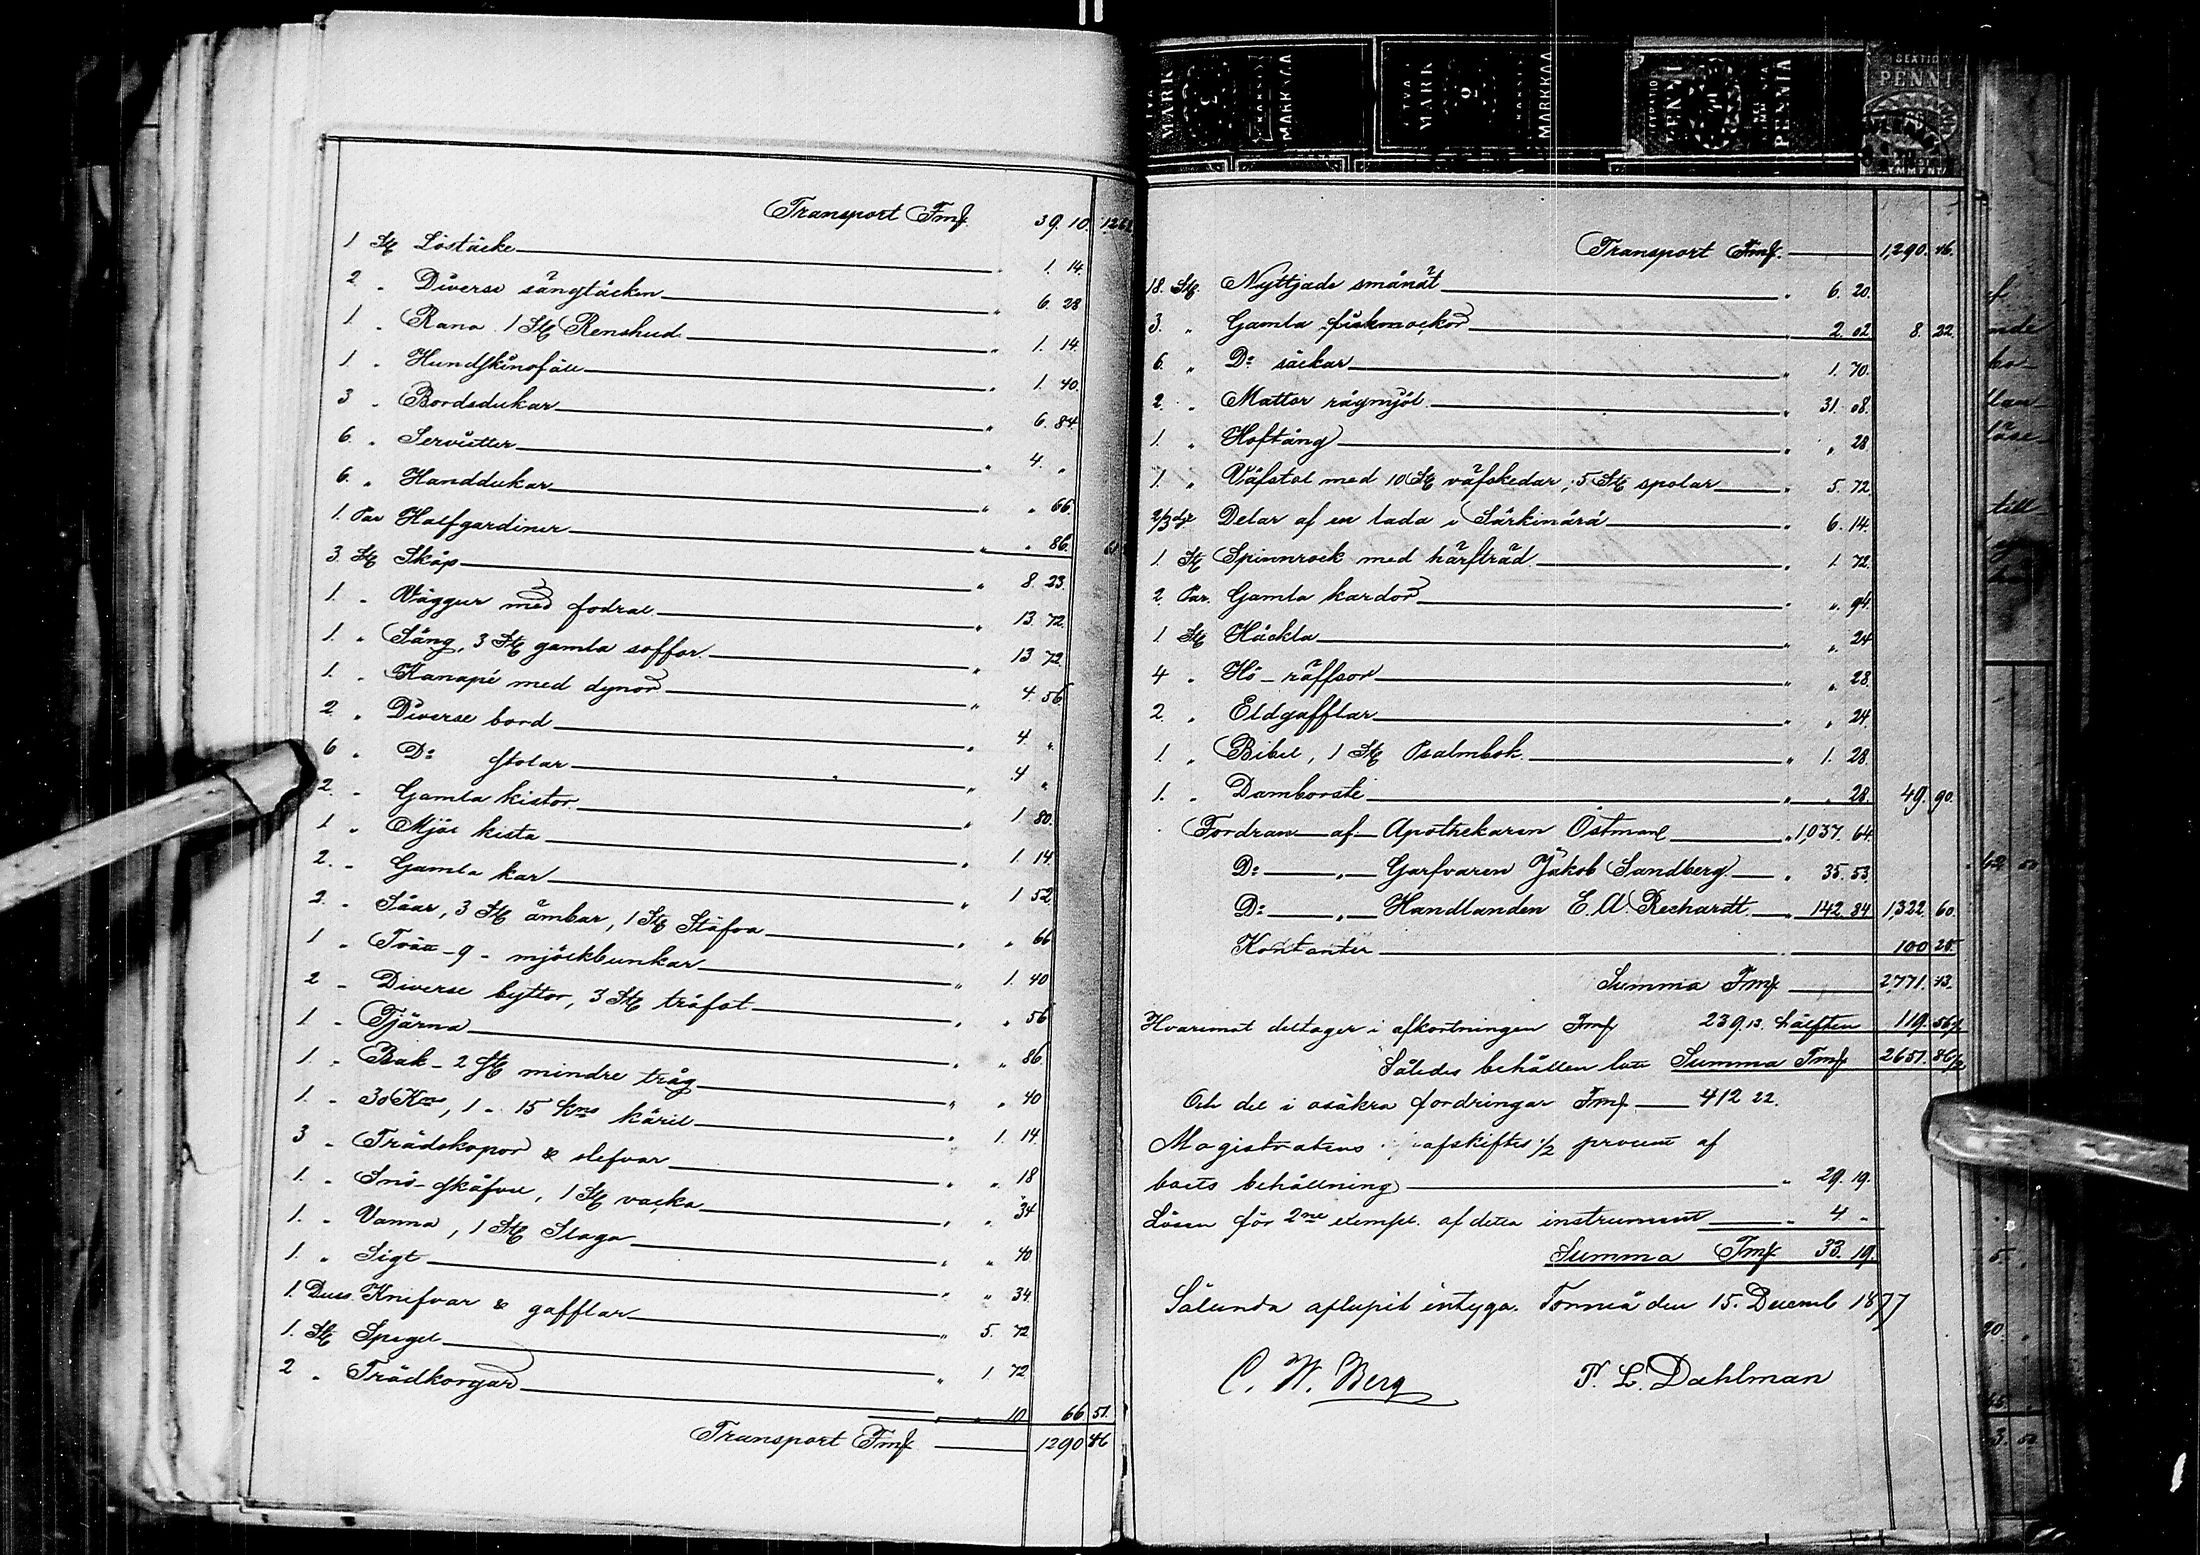 Transport Fmk 39. 10. 1261
1 St. Löstäcke " 1. 14.
2 " Diverse sängtäcken " 6. 28
1. " Rana 1 St. Renshud " 1. 14.
1. " Hundskinsfäll " 1. 40.
3 " Bordsdukar " 6. 84.
6. " Servietter " 4. "
6. " Handdukar " " 66.
1. Par Halfgardiner " " 86. 61
3. St. Skåp " 8. 23.
1. " Väggur med fodral " 13. 72.
1. " Säng, 3 St. gamla soffor " 13 72.
1. " Kanapé med dynor " 4. 56
2. " Diverse bord " 4. "
6 " Do stolar " 4 "
2. " Gamla kistor " 1 80.
1 " Mjöl kista " 1. 14.
2. " Gamla kar " 1 52.
2. " Såar, 3 St. ämbar, 1 St. Stäfva " " 66
1 " Tvätt - 9 - mjölkbunkar " 1. 40
2 " Diverse byttor, 3 St. träfat " " 56
1. " Tjärna " " 86.
1. " Bak - 2 St. mindre tråg " " 40
1. " 30 Kns, 1 " 15 kns käril " 1. 14.
3 " Trädskopor & slefvar " " 18
1. " Snö-skåfvel, 1 St. vacka " " 34
1. " Vanna, 1 St. Slaga " " 40
1. " Sigt " " 34
1. Duss. Knifvar & gafflar " 5. 72
1. St. Spegel " 1 72
2 " Trädkorgar " " 10. 66 51.
Transport Fmk 1290 46
SEXTIO
PENNI
MARK
MARKKAA
MARK
MARKKAA
PENNI
PENNIÄ
Transport Fmk. 1,290. 46.
18. St. Nyttjade smånät " 6. 20.
3. " Gamla fiskmockor " 2. 02 8. 22.
6. " Do säckar " 1. 70.
2. " Mattor rågmjöl " 31. 08.
1. " Hoftång " " 28
1. " Väfstol med 10 St. väfskedar, 5 St. spolar " 5. 72.
2/3 dels Delar af en lada i Särkinärä " 6. 14.
1 St. Spinnrock med härfträd " 1 72.
2. Par. Gamla kardor " " 94.
1 St. Häckla " " 24
4 " Hö-räffsor " " 28.
2. " Eldgafflar " " 24.
1. " Bibel, 1 St. Psalmbok " 1. 28.
1. " Damborste " " 28. 49. 90.
Fordran af Apothekaren Östman " 1,037. 64.
Do " Garfvaren Jakob Sandberg " 35. 53.
Do " Handlanden E. A. Rechardt " 142. 84 1,322. 60.
Kontanter 100 25
Summa Fmk 2,771. 43.
Hvaremot deltager i afkortningen Fmk 239. 13. hälften 119. 56½
Således behållen lott Summa Fmk 2651. 86½
Och del i osäkra fordringar Fmk 412 22.
Magistratens afskiftes ½ procent af
boets behållning " 29. 19.
Lösen för 2ne exempl. af detta instrument " 4 "
Summa Fmk 33. 19.
Sålunda aflupit intyga. Torneå den 15. Decemb 1877
C. W. Berg P. L. Dahlman